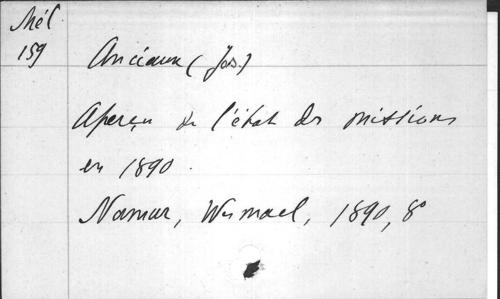 Mél
159
Anciaux (Jos.)
Aperçu de l'état des missions
en 1890.
Namur, Wesmael, 1890, 8º